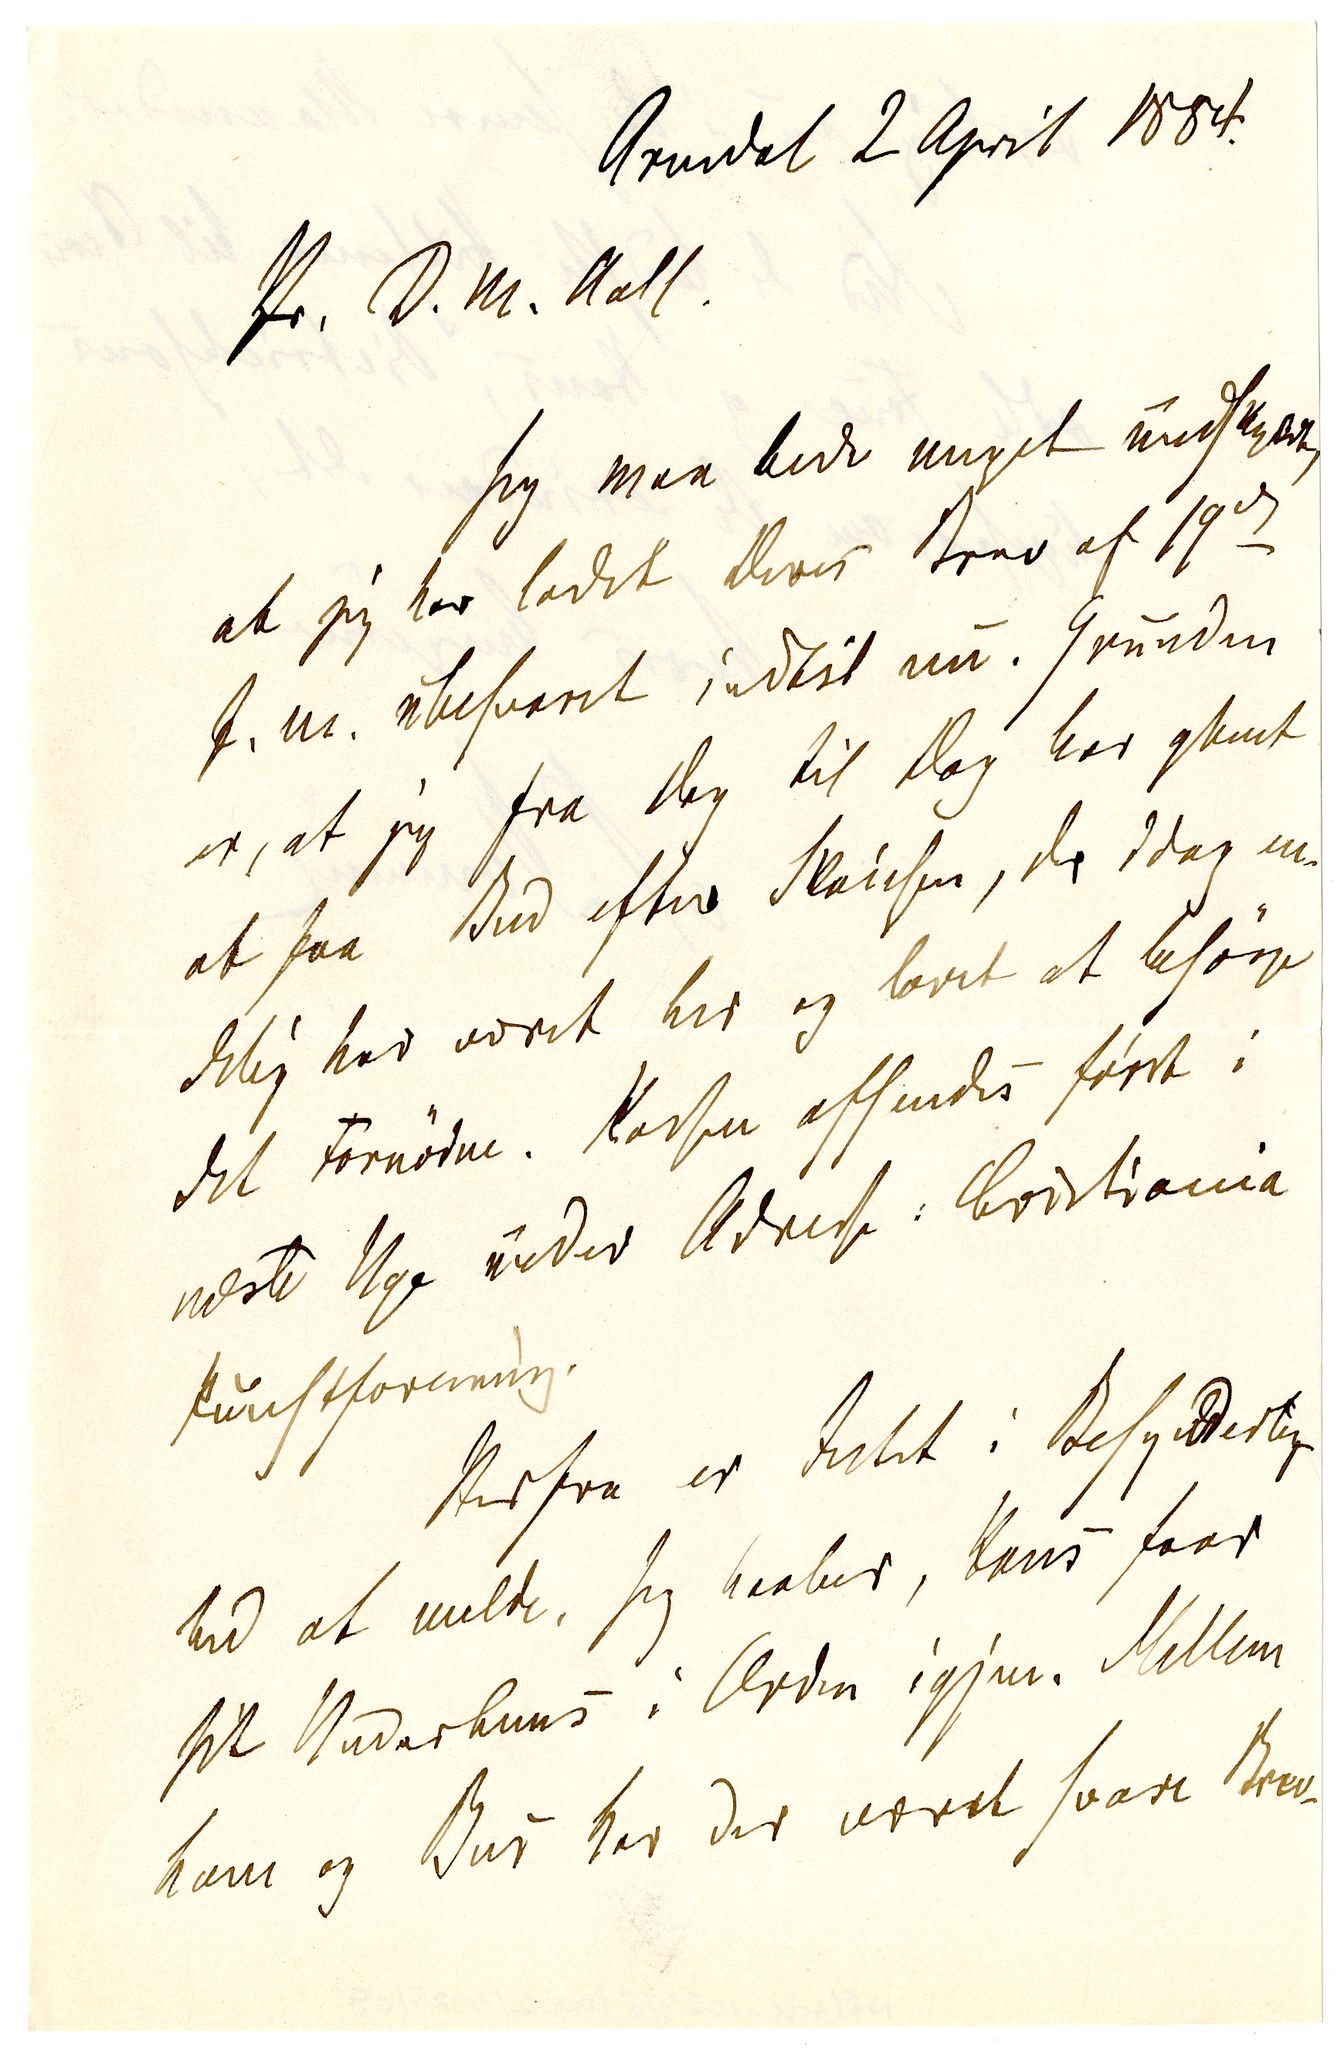 Arendal 2 April 1884.
Hr. D. M. Aall.
Jeg maa bede meget undskyldt,
at jeg har ladet Deres Brev af 19de
f. M. ubesvaret indtil nu. Grunden
er, at jeg fra Dag til Dag har ventet
at faa Bud efter, der idag en-
delig har været her og lovet at besørge
det Fornødne. Kassen afsendes først i
næste Uge under Adresse: Christiania
Kunstforening.
Herfra er Intet i Besynderlig-
hed at melde. Jeg haaber, Hans faar
sit Underhuus i Orden igjen. Mellem
ham og Bus har der været svare Brev-